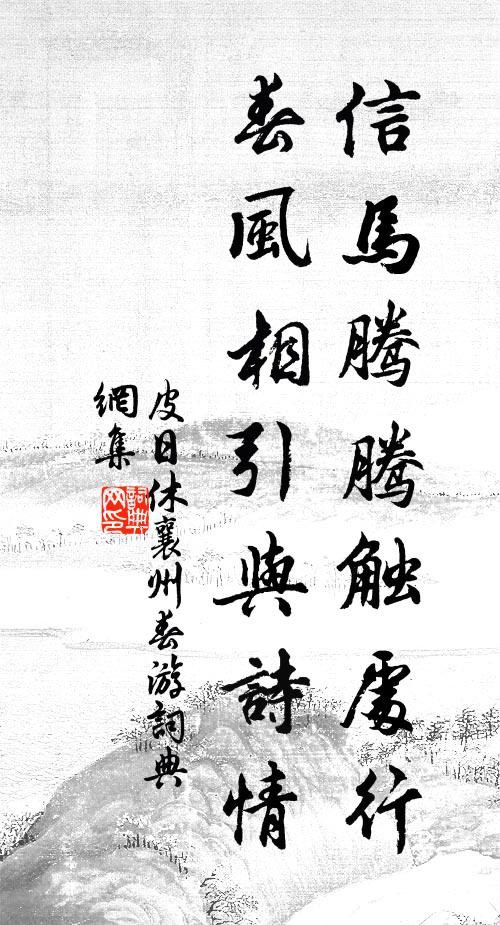 信馬騰騰觸處行
春風相引與詩情
皮日休襄州春游詞典
網集
詞典
网印